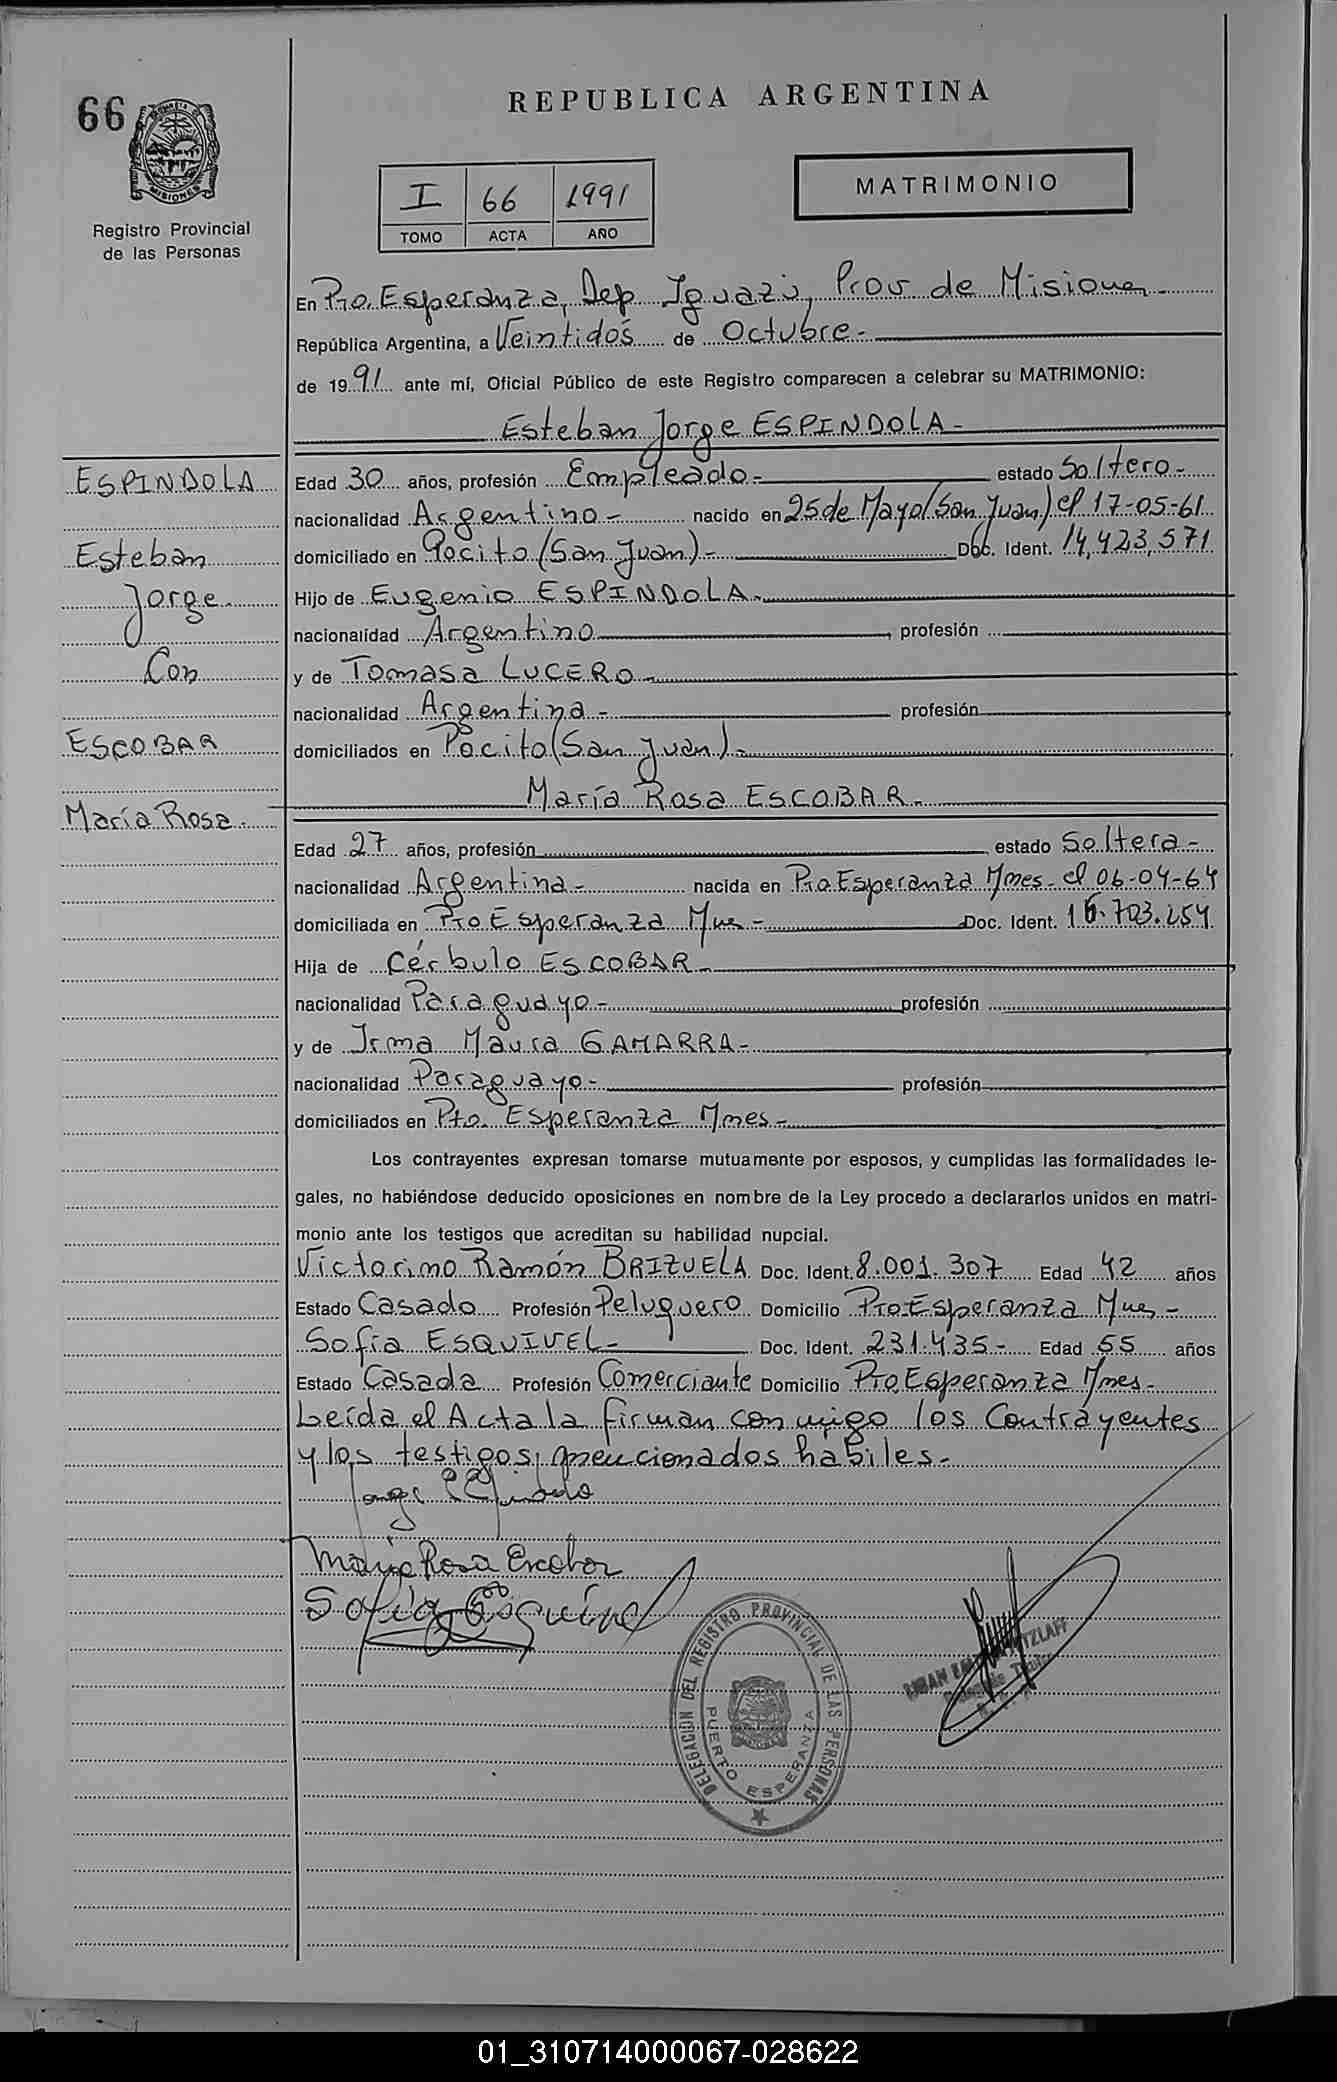 66
REPUBLICA ARGENTINA
MISIONES
Registro Provincial
de las Personas
I 66 1991
TOMO ACTA AÑO
MATRIMONIO
En Pto. Esperanza, Dep Iguazú, Prov de Misiones
República Argentina, a Veintidós de Octubre.-
de 1991 ante mí, Oficial Público de este Registro comparecen a celebrar su MATRIMONIO:
Esteban Jorge ESPINDOLA-
ESPINDOLA
Esteban
Jorge
Con
ESCOBAR
María Rosa.
Edad 30 años, profesión Empleado- estado Soltero-
nacionalidad Argentino- nacido en 25 de Mayo (San Juan) el 17-05-61
domiciliado en Pocito (San Juan)- Doc. Ident. 14,423,571
Hijo de Eugenio ESPINDOLA-
nacionalidad Argentino profesión
y de Tomasa LUCERO-
nacionalidad Argentina- profesión
domiciliados en Pocito (San Juan)-
María Rosa ESCOBAR-
Edad 27 años, profesión estado Soltera-
nacionalidad Argentina- nacida en Pto Esperanza Mnes- el 06-04-64
domiciliada en Pto Esperanza Mnes- Doc. Ident. 16.703.254
Hija de Cérbulo ESCOBAR-
nacionalidad Paraguayo- profesión
y de Irma Maura GAMARRA-
nacionalidad Paraguayo- profesión
domiciliados en Pto. Esperanza Mnes-
Los contrayentes expresan tomarse mutuamente por esposos, y cumplidas las formalidades le-
gales, no habiéndose deducido oposiciones en nombre de la Ley procedo a declararlos unidos en matri-
monio ante los testigos que acreditan su habilidad nupcial.
Victorino Ramón BRIZUELA Doc. Ident. 8.001.307 Edad 42 años
Estado Casado Profesión Peluquero Domicilio Pto Esperanza Mnes-
Sofía ESQUIVEL- Doc. Ident. 231.435- Edad 55 años
Estado Casada Profesión Comerciante Domicilio Pto Esperanza Mnes-
Leída el Acta la firman conmigo los Contrayentes
y los testigos mencionados hábiles-
Jorge E Espindola
Maria Rosa Escobar
Sofia Esquivel
DELEGACION DEL REGISTRO PROVINCIAL DE LAS PERSONAS
PUERTO ESPERANZA
01_310714000067-028622